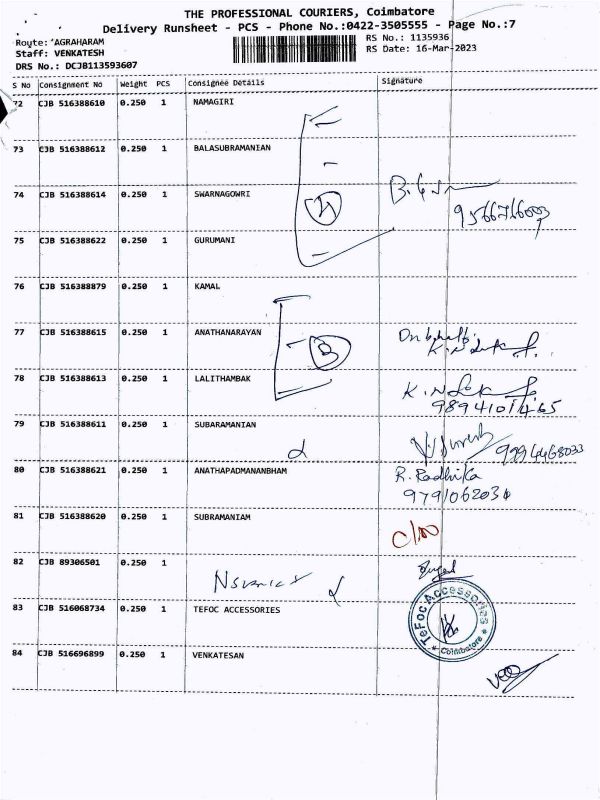 THE PROFESSIONAL COURIERS, Coimbatore
Delivery Runsheet - PCS - Phone No.:0422-3505555 - Page No.:7
Route: AGRAHARAM
Staff: VENKATESH
DRS No.: DCJB113593607
RS No.: 1135936
RS Date: 16-Mar-2023
S No Consignment No Weight PCS Consignee Details Signature
72 CJB 516388610 0.250 1 NAMAGIRI
73 CJB 516388612 0.250 1 BALASUBRAMANIAN
74 CJB 516388614 0.250 1 SWARNAGOWRI
75 CJB 516388622 0.250 1 GURUMANI
76 CJB 516388879 0.250 1 KAMAL
77 CJB 516388615 0.250 1 ANATHANARAYAN
78 CJB 516388613 0.250 1 LALITHAMBAK
9894101465
79 CJB 516388611 0.250 1 SUBARAMANIAN
9994468033
80 CJB 516388621 0.250 1 ANATHAPADMANANBHAM R. Radhika
9791062030
81 CJB 516388620 0.250 1 SUBRAMANIAM
82 CJB 89306501 0.250 1
83 CJB 516068734 0.250 1 TEFOC ACCESSORIES
TeFoc Accessories
Coimbatore
84 CJB 516696899 0.250 1 VENKATESAN